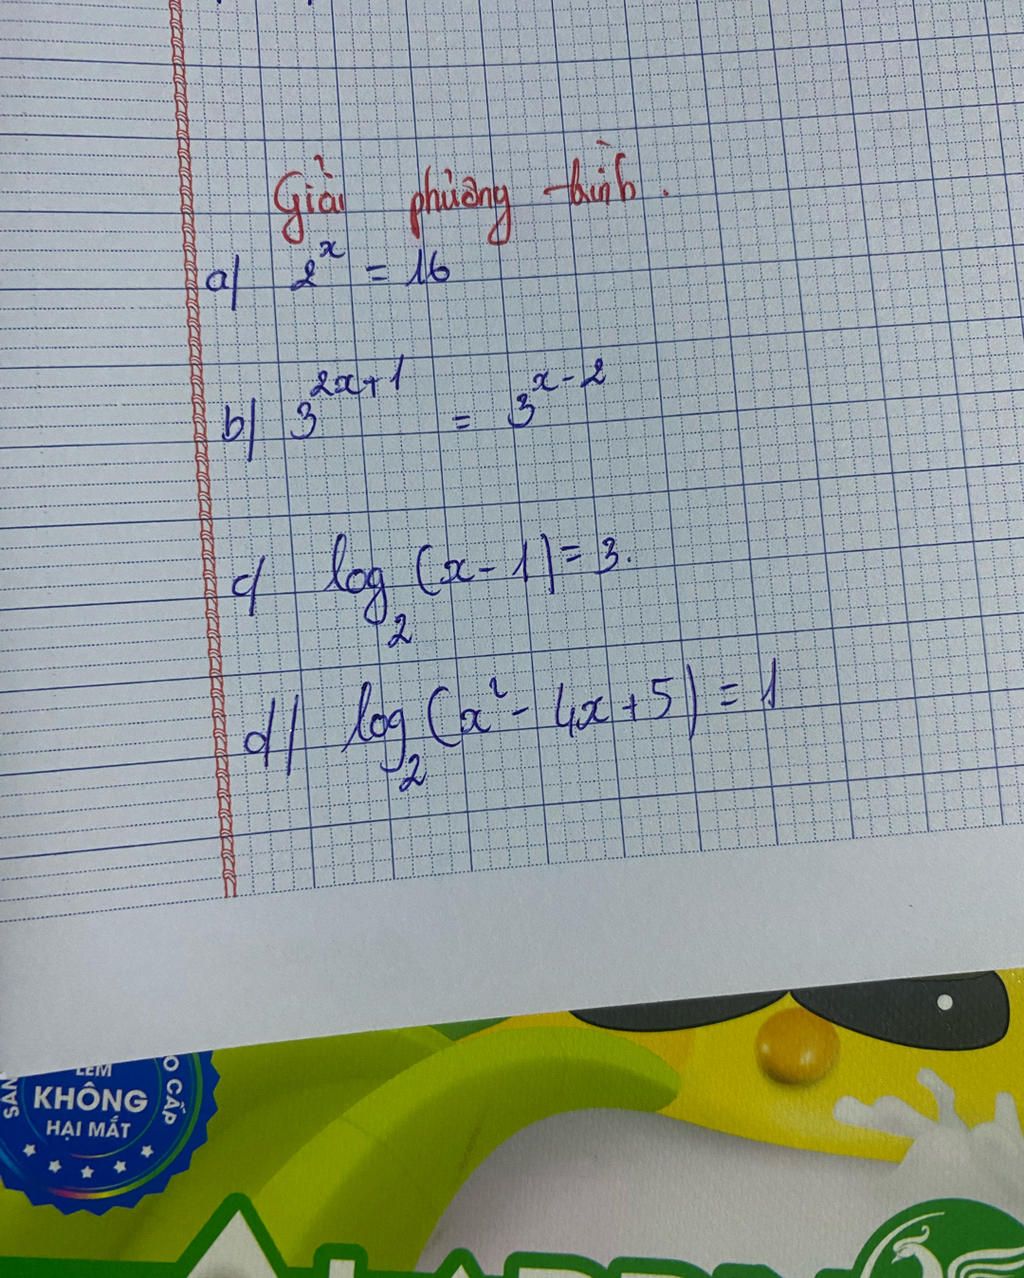 Giải phương trình.
a) 2^x = 16
b) 3^{2x+1} = 3^{x-2}
c) log_2 (x-1) = 3.
d) log_2 (x^2 - 4x + 5) = 1
KHÔNG
HẠI MẮT